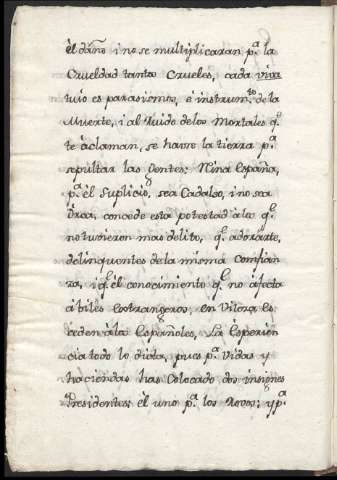 èl daño i no se multiplicaran p.ª la
Crueldad tanto Crueles, cada
tuio es parasismo, è instrum.to de la
Muerte, i al Ruido de los Mortales q.e
te àclaman, se havre la tierra p.ª
sepultar las Gentes: Nina España,
p.ª èl Suplicio, sea Cadalso, i no sea
concede esta potestad àlos q.e
no tuvieron mas delito, q.e adorarte,
delinquentes de la misma Confian
za, i q.e èl conocimiento q.e no àfecta
àbiles Estrangeros, en
ceden àlos Españoles, La Esperien
cia todo lo dicta, pues p.ª Vidas y
haciendas has Colocado dos insignes
Presidentes: èl uno p.ª los Reos; y p.ª